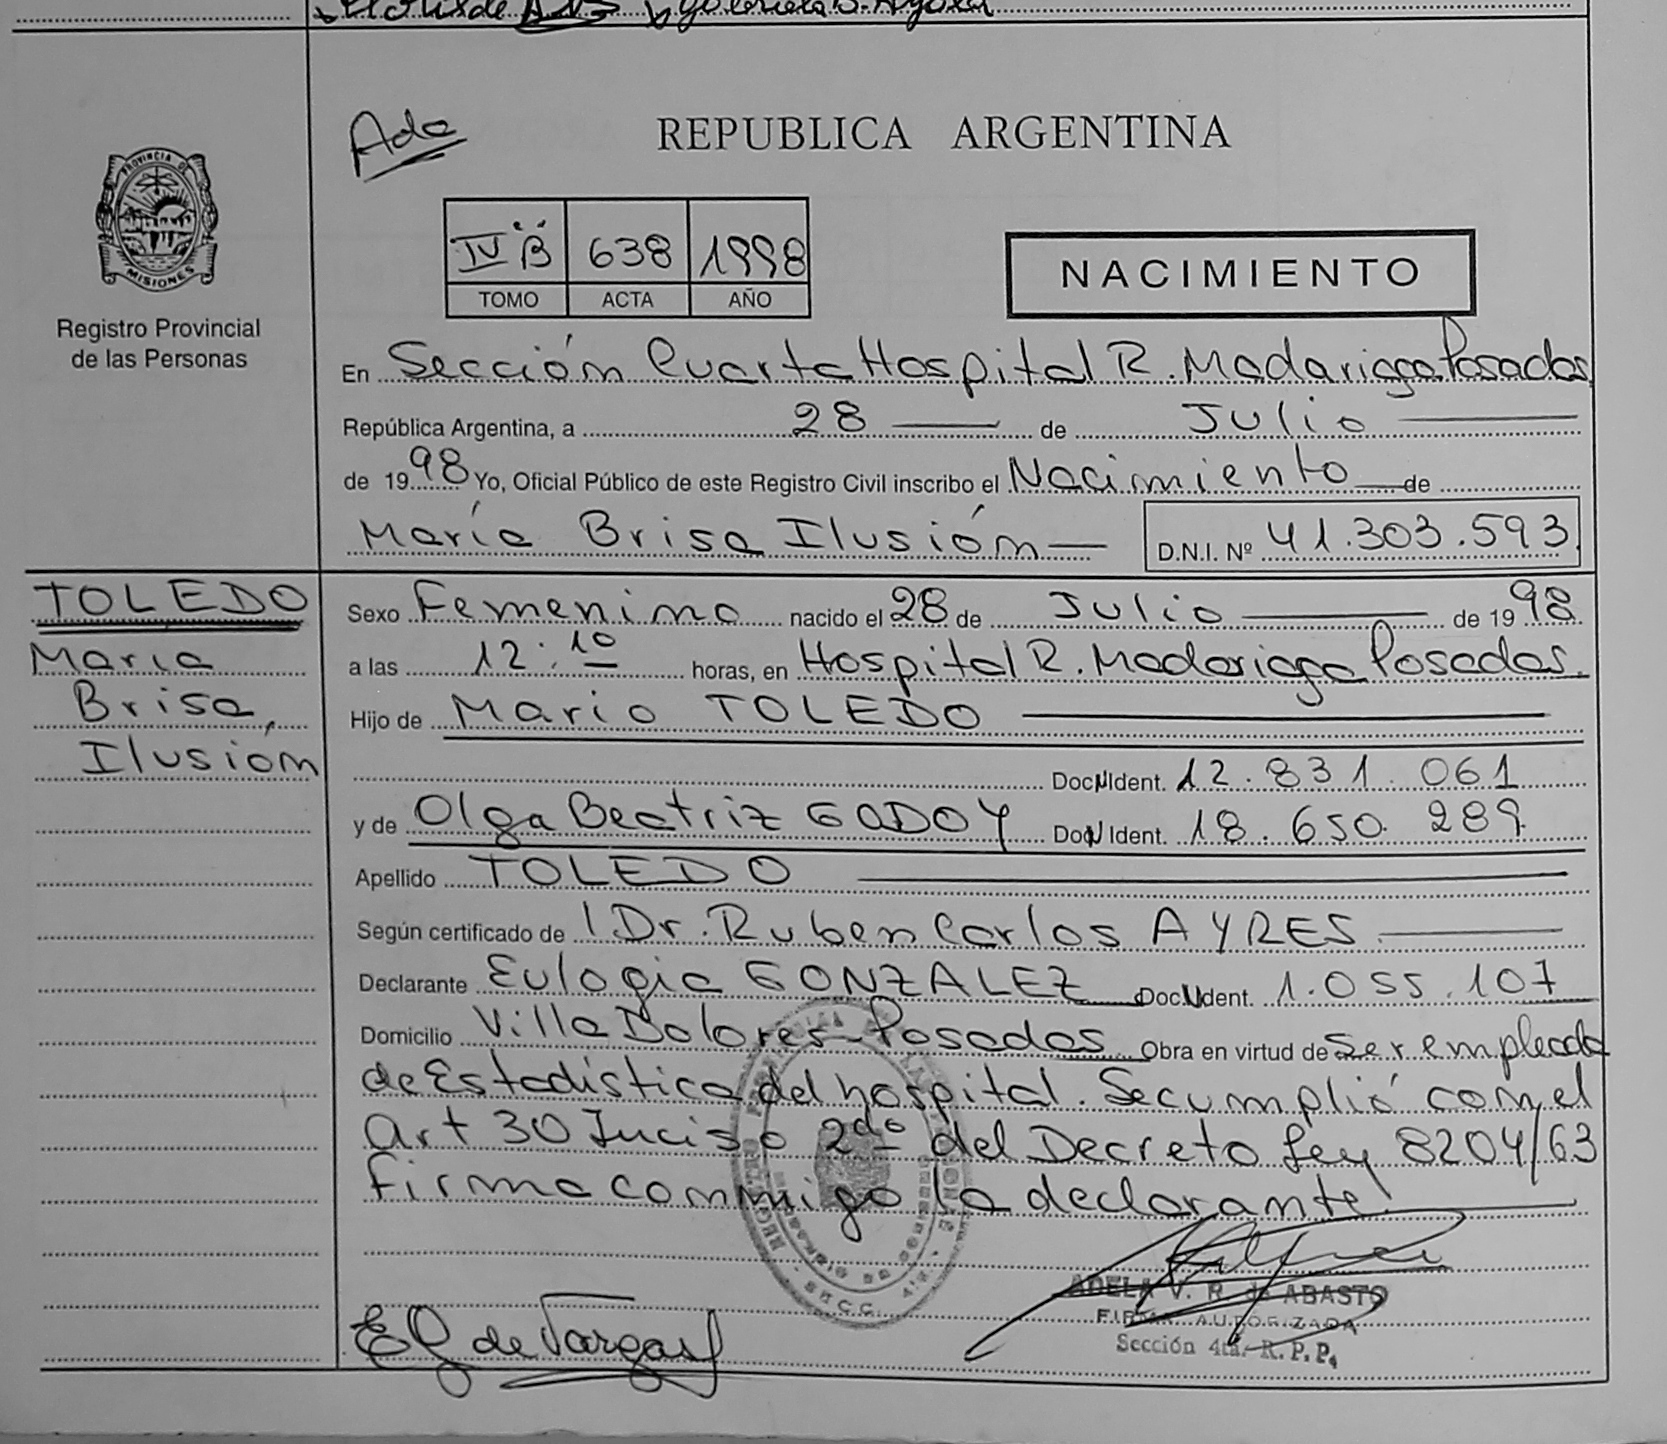 Ada
REPUBLICA ARGENTINA
PROVINCIA DE
MISIONES
Registro Provincial
de las Personas
IV "B" 638 1998
TOMO ACTA AÑO
NACIMIENTO
En Sección Cuarta Hospital R. Madariaga Posadas
República Argentina, a 28 de Julio
de 1998 Yo, Oficial Público de este Registro Civil inscribo el Nacimiento de
María Brisa Ilusión D.N.I. Nº 41.303.593
TOLEDO
Maria
Brisa,
Ilusiom
Sexo Femenino nacido el 28 de Julio de 1998
a las 12:10 horas, en Hospital R. Madariaga Posadas.
Hijo de Mario TOLEDO
Doc. Ident. 12.831.061
y de Olga Beatriz GODOY Doc. Ident. 18.650.289
Apellido TOLEDO
Según certificado de Dr. Ruben Carlos AYRES
Declarante Eulogia GONZALEZ Doc. Ident. 1.055.107
Domicilio Villa Dolores-Posadas Obra en virtud de Ser empleada
de Estadística del hospital. Se cumplió con el
art 30 Inciso 2do del Decreto Ley 8204/63
firma conmigo la declarante.
ADELA V. R. de ABASTO
FIRMA AUTORIZADA
Sección 4ta. R.P.P.
EG de Vargas